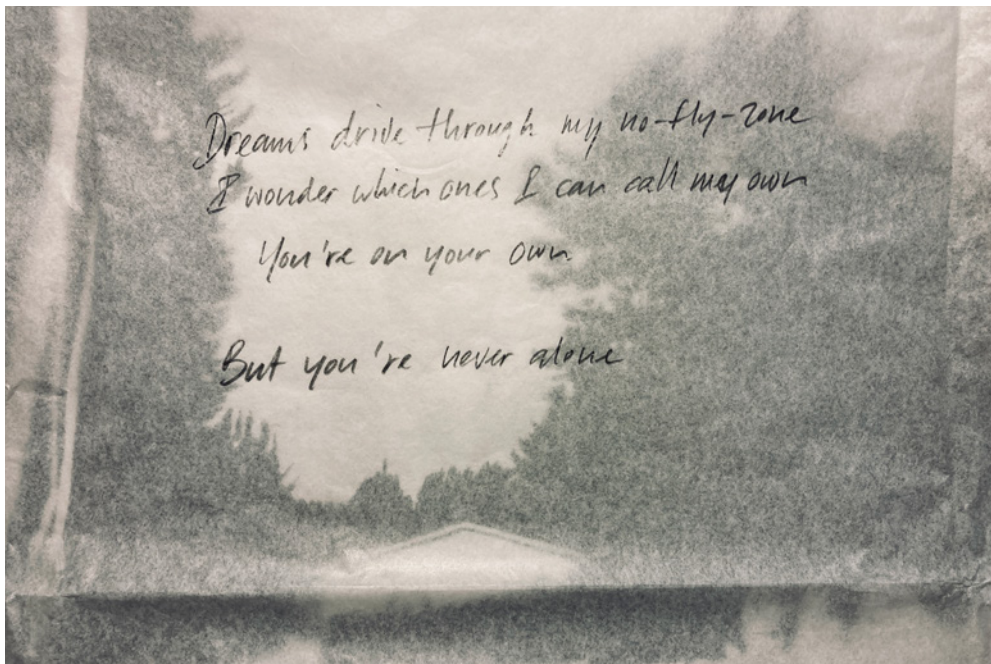 Dreams drive through my no-fly-zone
I wonder which ones I can call my own
You're on your own
But you're never alone